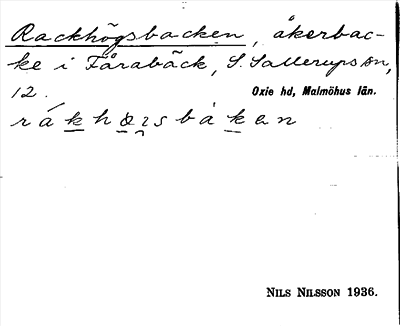 Rackhögsbacken, åkerbac-
ke i Fårabäck, S. Sallerups sn,
12.
Oxie hd, Malmöhus län.
NILS NILSSON 1936.